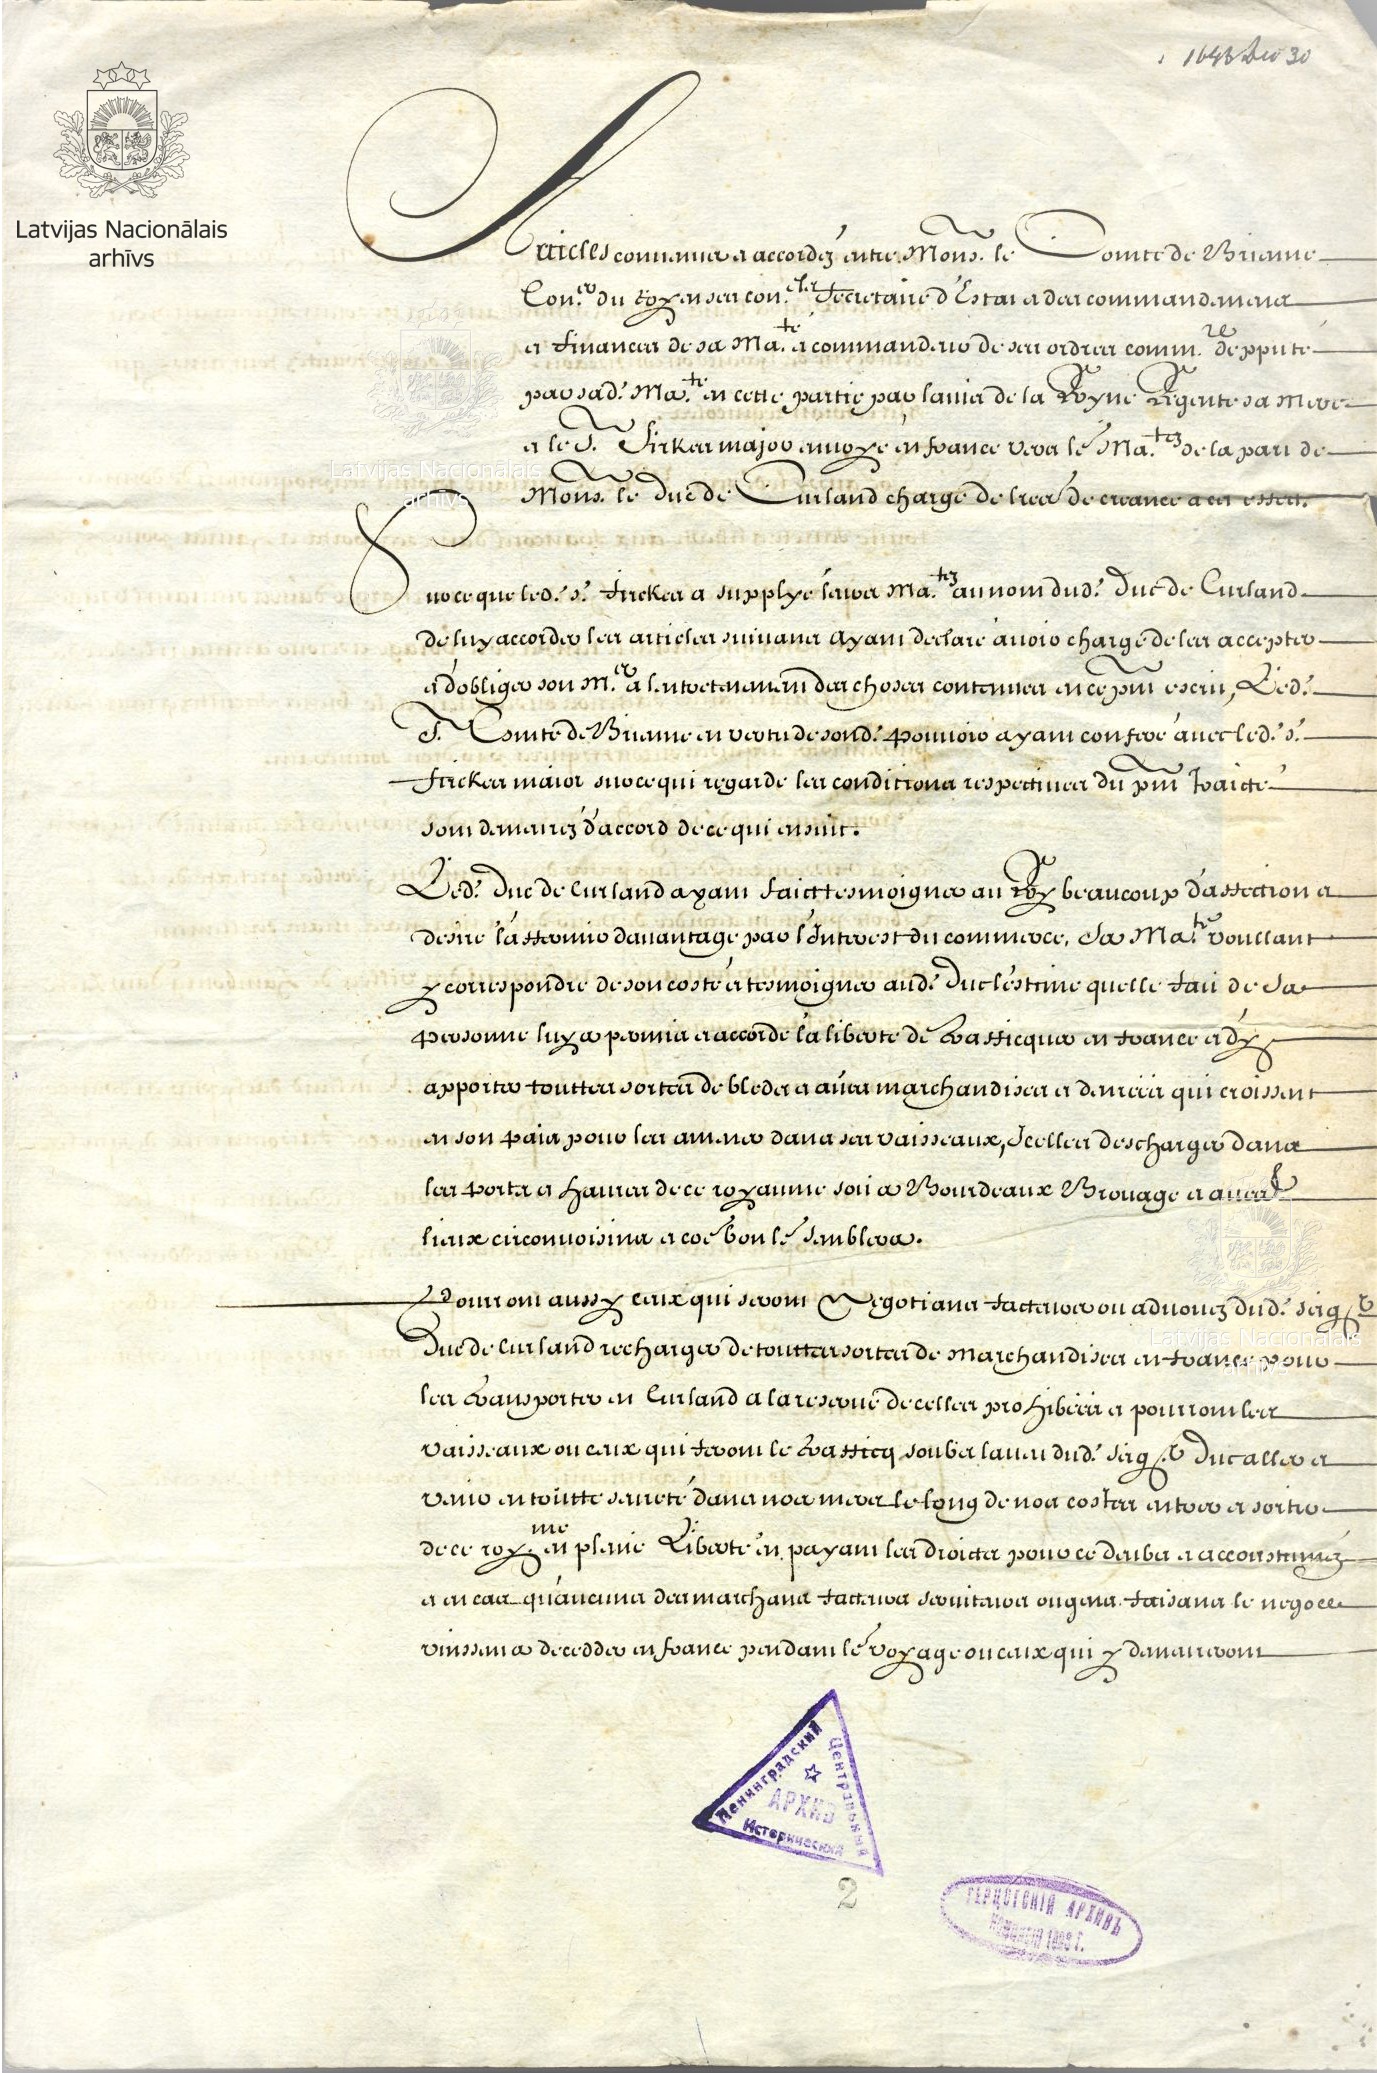 1643 Dec 30
Latvijas Nacionālais
arhīvs
Articles convenus et accordez entre Mons.r le Comte de Brienne
Con.er du Roy en ses con.els Secretaire d'Estat et des commandemens
et finances de sa Ma.té et commandeur de ses ordres comm.re depputé
par sad. Ma.té en cette partie par l'avis de la Royne Regente sa Mere
et le S.r Firkes major envoyé en france vers le Ma.tez de la part de
Mons.r le Duc de Curland chargé de lres de creance a cet effect.
Sur ce que led. s.r firkes a supplyé leurs Ma.tez au nom dud. Duc de Curland
de luy accorder les articles suivans ayant declaré avoir charge de les accepter
et d'obliger son M.e a l'entretenement des choses contenues en ce pnt escrit, Led.
S.r Comte de Brienne en vertu de sond. pouvoir ayant conferé avec led. s.r
firckes maior sur ce qui regarde les conditions respectives du pnt traicté
sont demeurez d'accord de ce qui ensuit.
Led. Duc de Curland ayant faict tesmoigner au Roy beaucoup d'affection et
desire l'affermir davantage par l'Interest du commerce, Sa Ma.té voullant
y correspondre de son costé et tesmoigner aud. Duc l'estime quelle fait de sa
personne luy a permis et accordé la liberté de trafficquer en france et d'y
apporter touttes sortes de bleds et aues marchandises et denrées qui croissent
en son pais pour les amener dans ses vaisseaux, Icelles descharger dans
les ports et havres de ce royaume soit a Bourdeaux Brouage et aues
lieux circonvoisins et coe bon le semblera.
Pourront aussy ceux qui seront Negotians facteurs ou advouez dud. seig.r
Duc de Curland recharger de touttes sortes de Marchandises en france pour
les transporter en Curland a la reserve de celles prohibées et pourront les
vaisseaux ou ceux qui feront le trafficq soubs l'aveu dud. seig.r Duc aller et
venir en toutte seureté dans nos mers le long de nos costes entrer et sortir
de ce roy.me en plaine Liberté en payant les droicts pour ce deubs et accoustumez
et en cas qu'aucuns des marchans facteurs serviteurs ou gens faisans le negoce
vinssent a decedder en france pendant le voyage ou ceux qui y demeureront
Ленинградский
Центральный
Исторический
АРХИВ
2
ГЕРЦОГСКІЙ АРХИВЪ